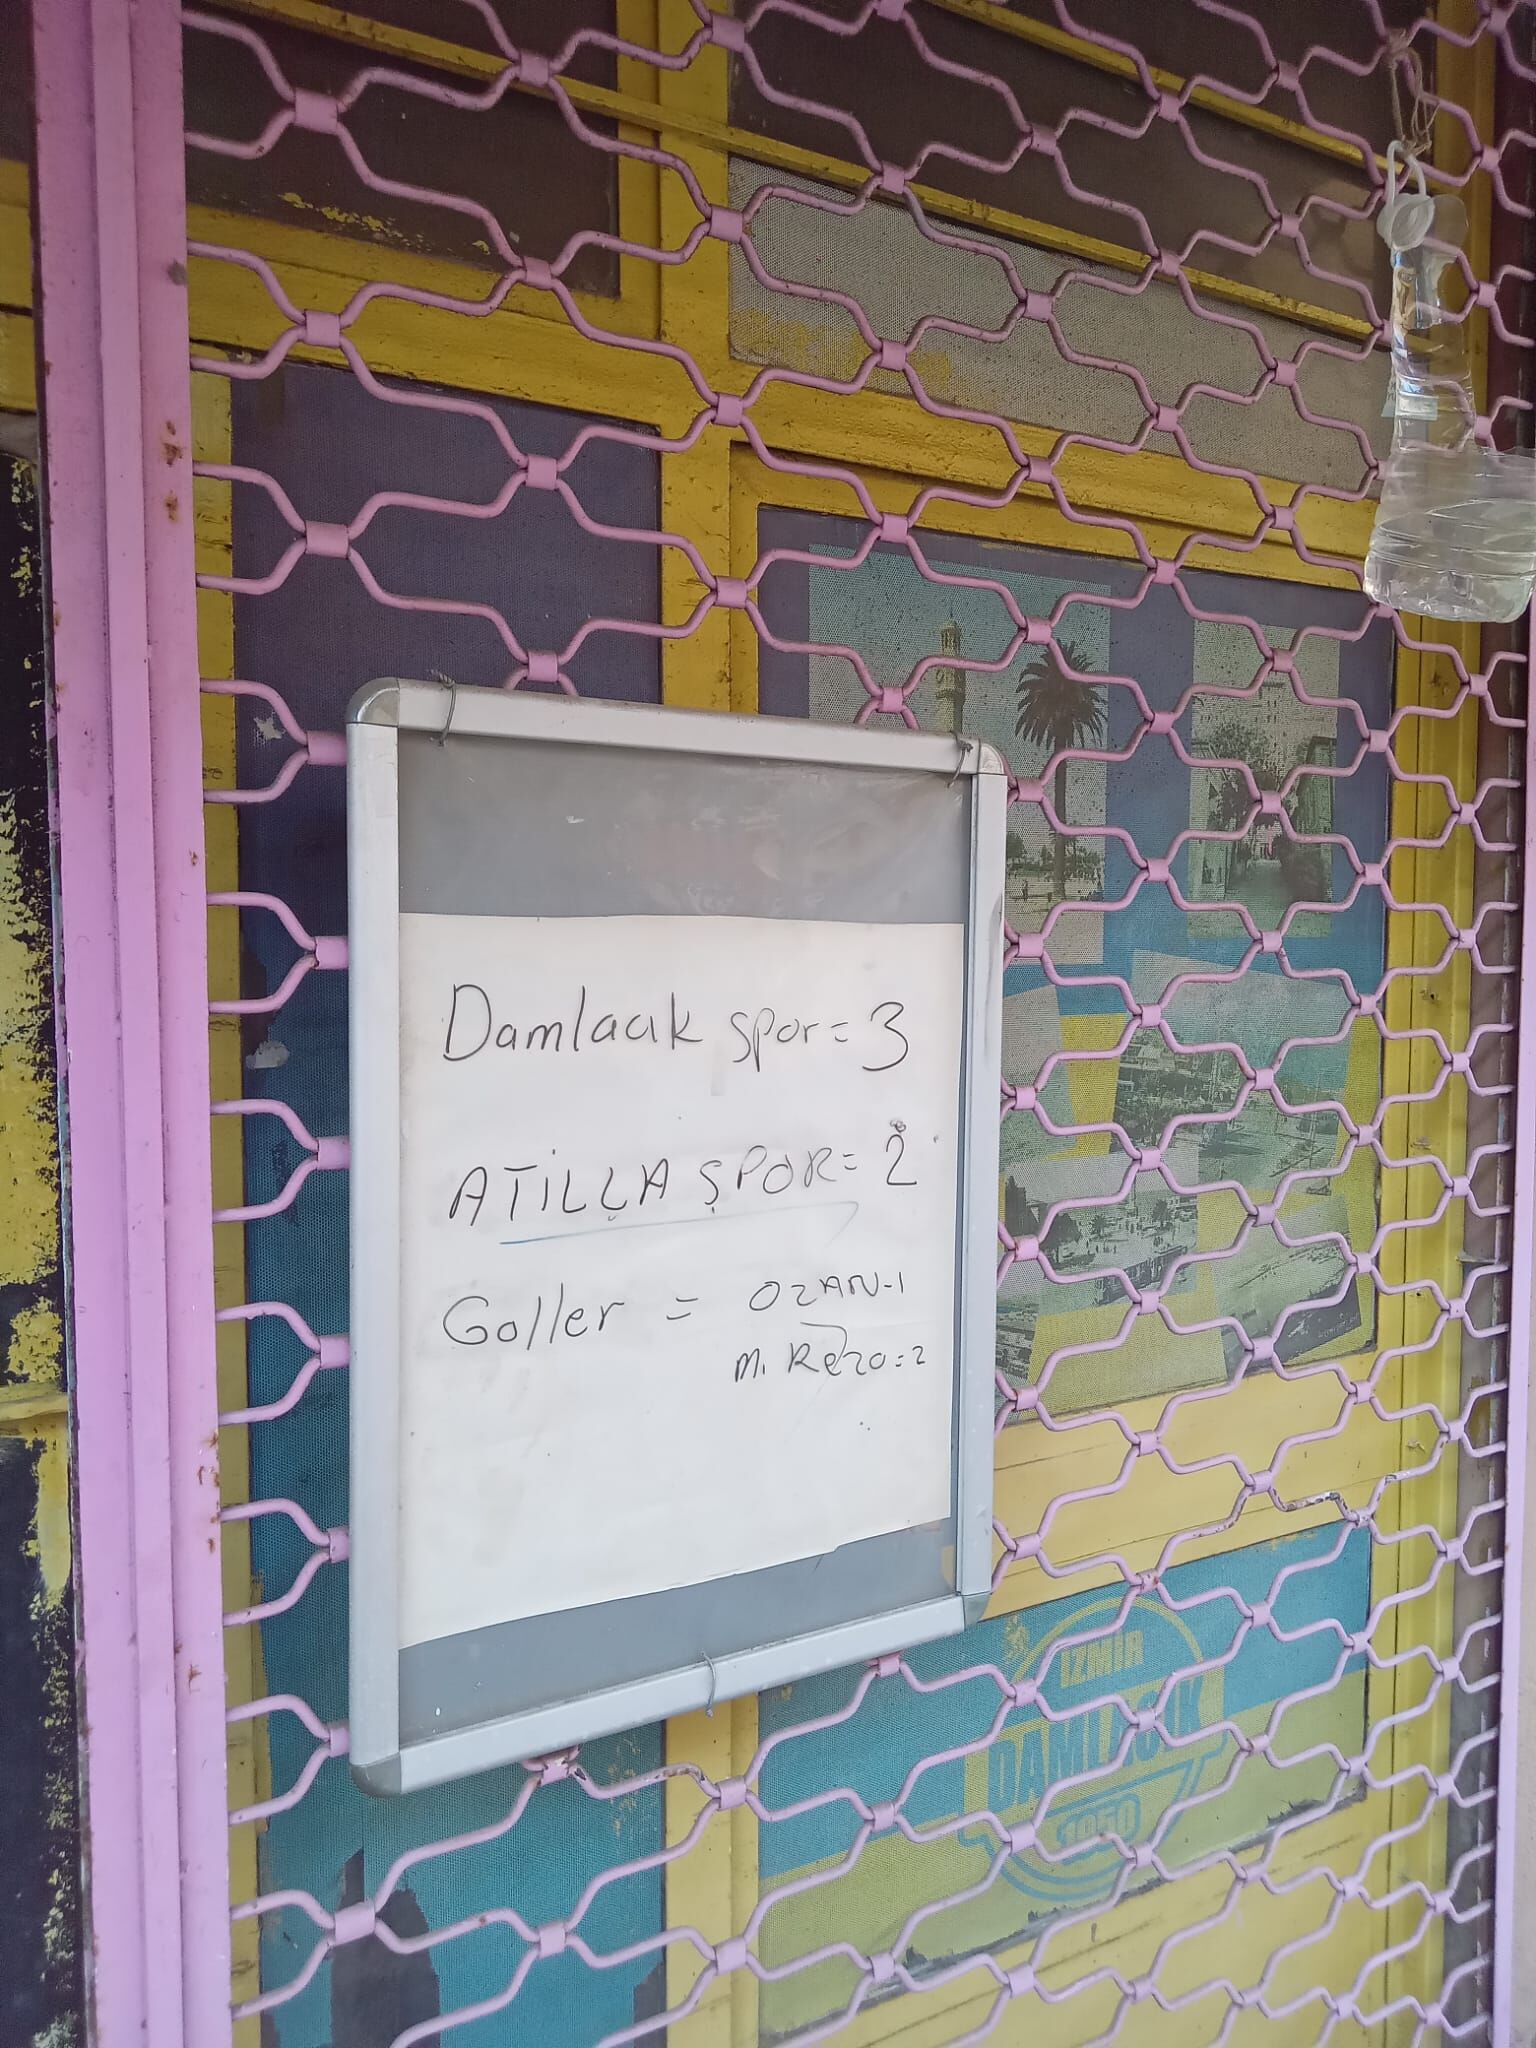 Damlacık spor = 3
ATİLLA SPOR = 2
Goller = OZAN-1
M. Rezo = 2
İZMİR
DAMLACIK
1950